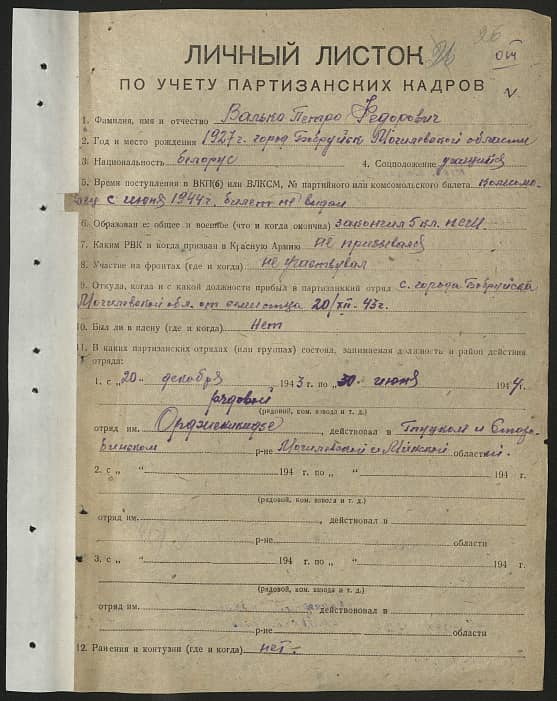 26
от
ЛИЧНЫЙ ЛИСТОК
ПО УЧЕТУ ПАРТИЗАНСКИХ КАДРОВ
1. Фамилия, имя и отчество Валько Петро Федорович
2. Год и место рождения 1927 г. город Бобруйск Могилевской области
3. Национальность белорус 4. Соцположение учащийся
5. Время поступления в ВКП(б) или ВЛКСМ, № партийного или комсомольского билета комсомо-
с июня 1944 г. билет не видал
6. Образован е: общее и военное (что и когда окончил) закончил 5 кл.
7. Каким РВК и когда призван в Красную Армию не призывался
8. Участие на фронтах (где и когда) не участвовал
9. Откуда, когда и с какой должности прибыл в партизанский отряд с. города Бобруйска
Могилевской обл. от 20/XII-43 г.
10. Был ли в плену (где и когда) Нет
11. В каких партизанских отрядах (или группах) состоял, занимаемая должность и район действия
отряда:
1. с „20„ декабря 1943 г. по „30„ июня 1944 г.
рядовой
(рядовой, ком. взвода и т. д.)
отряд им. Орджоникидзе, действовал в Глусском и Старо-
бинском р-не Могилевской и Минской области.
2. с „ “ 194 г. по „ “ 194 г.
(рядовой, ком. взвода и т. д.)
отряд им. , действовал в
р-не области
3. с „ “ 194 г. по „ “ 194 г.
(рядовой, ком. взвода и т. д.)
отряд им. действовал в
р-не области
12. Ранения и контузии (где и когда) нет.